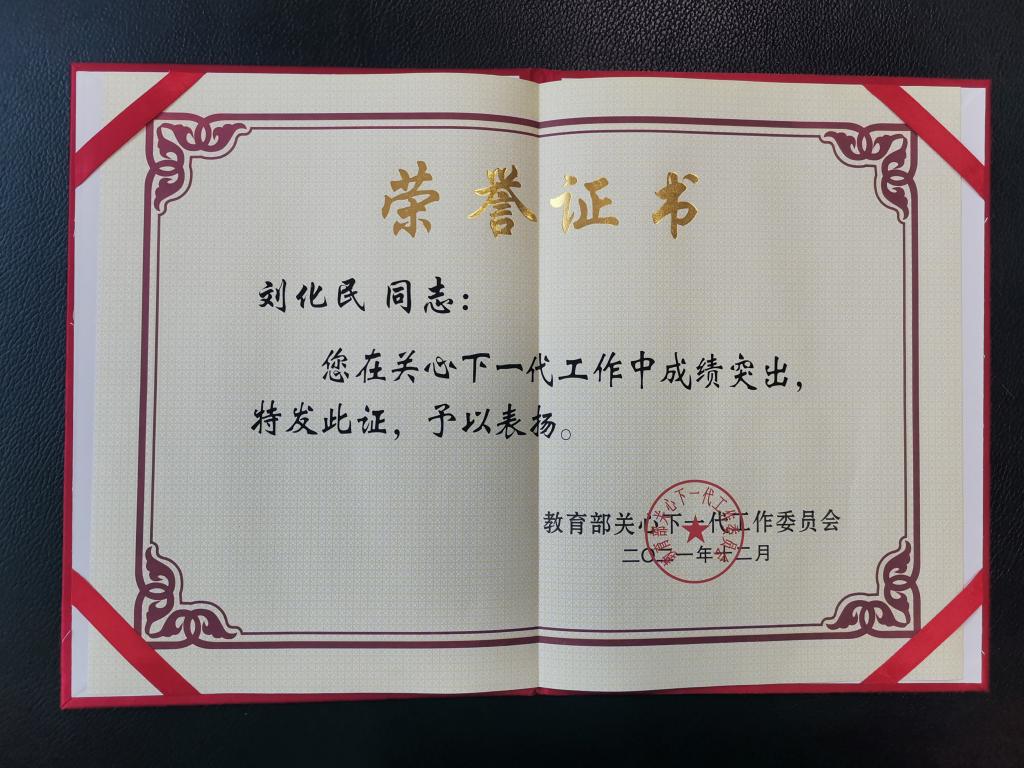 荣誉证书
刘化民 同志：
您在关心下一代工作中成绩突出，
特发此证，予以表扬。
教育部关心下一代工作委员会
二〇二一年十二月
教育部关心下一代工作委员会